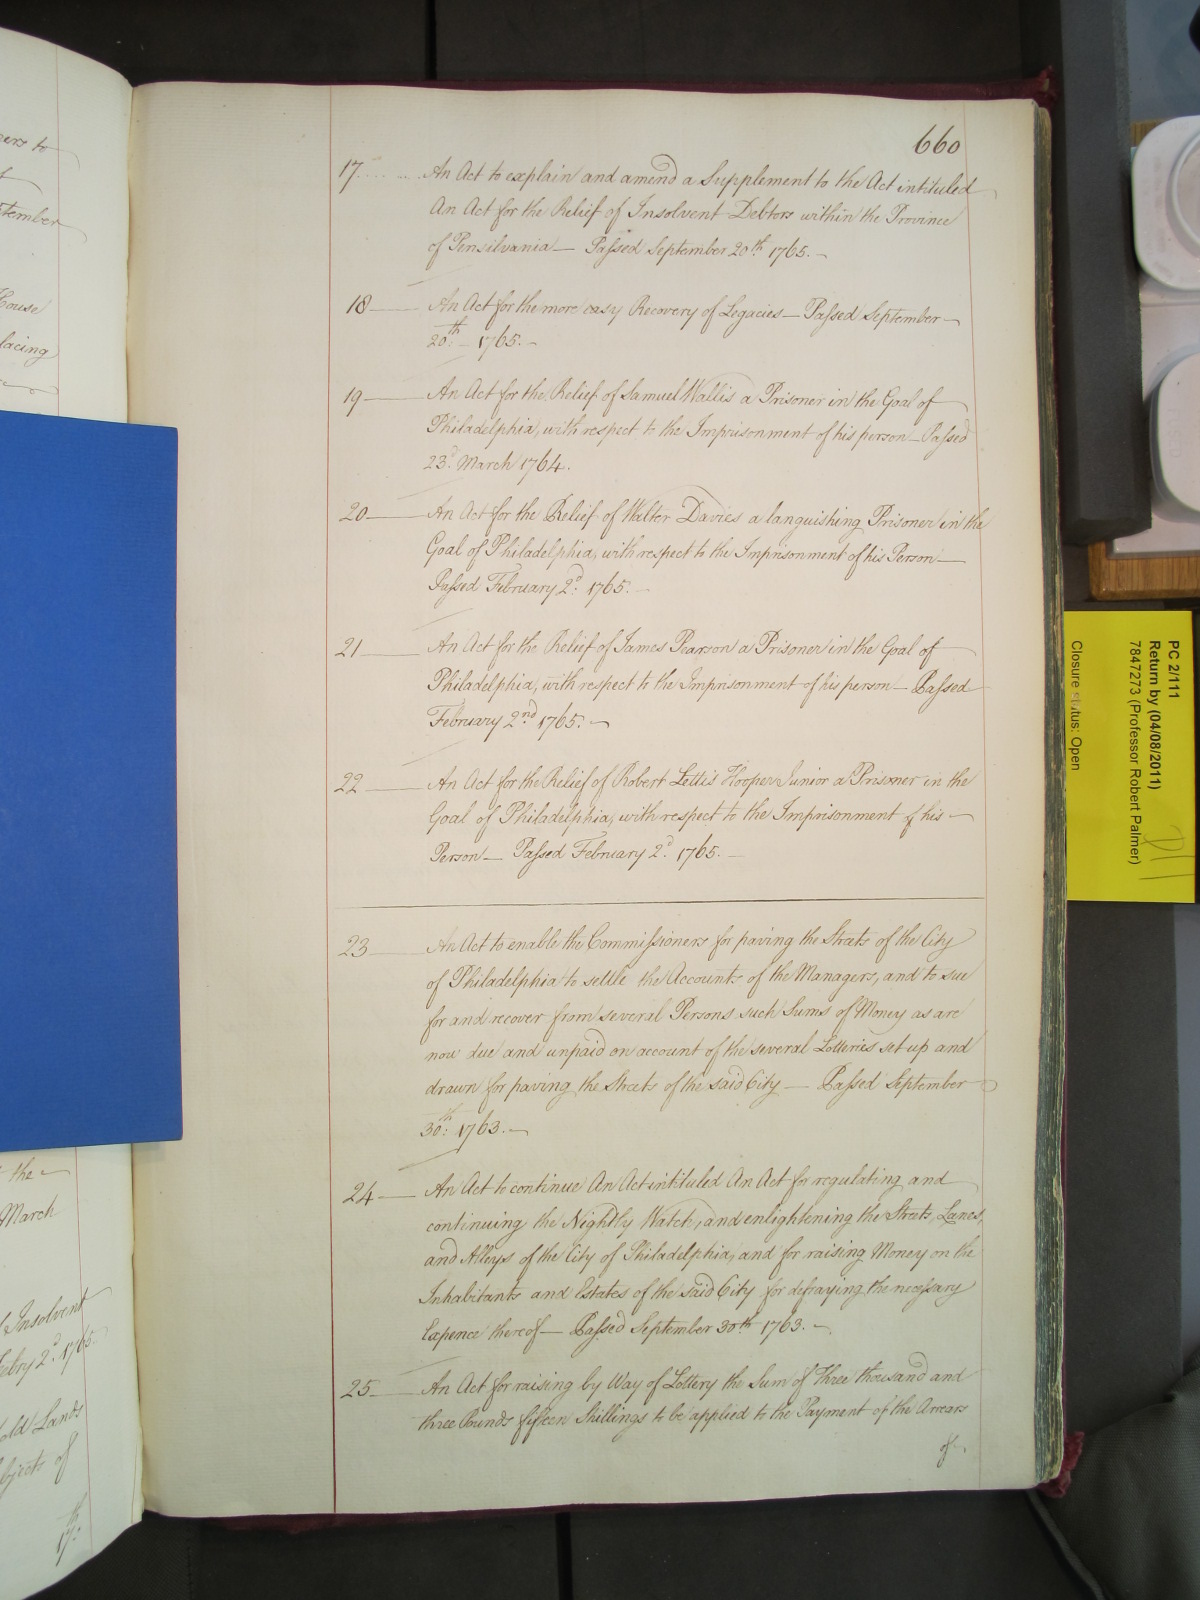 660
17 An Act to explain and amend a Supplement to the Act intituled
An Act for the Relief of Insolvent Debtors within the Province
of Pensilvania — Passed September 20th 1765. —
18 — An Act for the more easy Recovery of Legacies — Passed September —
20th 1765. —
19 — An Act for the Relief of Samuel Wallis a Prisoner in the Goal of
Philadelphia, with respect to the Imprisonment of his person — Passed
23d March 1764.
20 — An Act for the Relief of Walter Davies a languishing Prisoner in the
Goal of Philadelphia, with respect to the Imprisonment of his Person —
Passed February 2d 1765. —
21 — An Act for the Relief of James Pearson a Prisoner in the Goal of
Philadelphia, with respect to the Imprisonment of his person — Passed
February 2nd 1765. —
22 — An Act for the Relief of Robert Lettis Hooper Junior a Prisoner in the
Goal of Philadelphia, with respect to the Imprisonment of his —
Person — Passed February 2d 1765. —
23 — An Act to enable the Commissioners for paving the Streets of the City
of Philadelphia to settle the Accounts of the Managers, and to sue
for and recover from several Persons such Sums of Money as are
now due and unpaid on account of the several Lotteries set up and
drawn for paving the Streets of the said City — Passed September
30th 1763. —
24 — An Act to continue An Act intituled An Act for regulating and
continuing the Nightly Watch, and enlightening the Streets, Lanes,
and Alleys of the City of Philadelphia, and for raising Money on the
Inhabitants and Estates of the said City for defraying the necessary
Expence thereof — Passed September 30th 1763. —
25 — An Act for raising by Way of Lottery the Sum of Three thousand and
three Pounds fifteen Shillings to be applied to the Payment of the Arrears
of
to
tember
House
lacing
the —
March
Insolvent
Febry 2d 1765
old Lands
bjects of
PC 2/111
Return by (04/08/2011)
7847273 (Professor Robert Palmer)
Closure status: Open